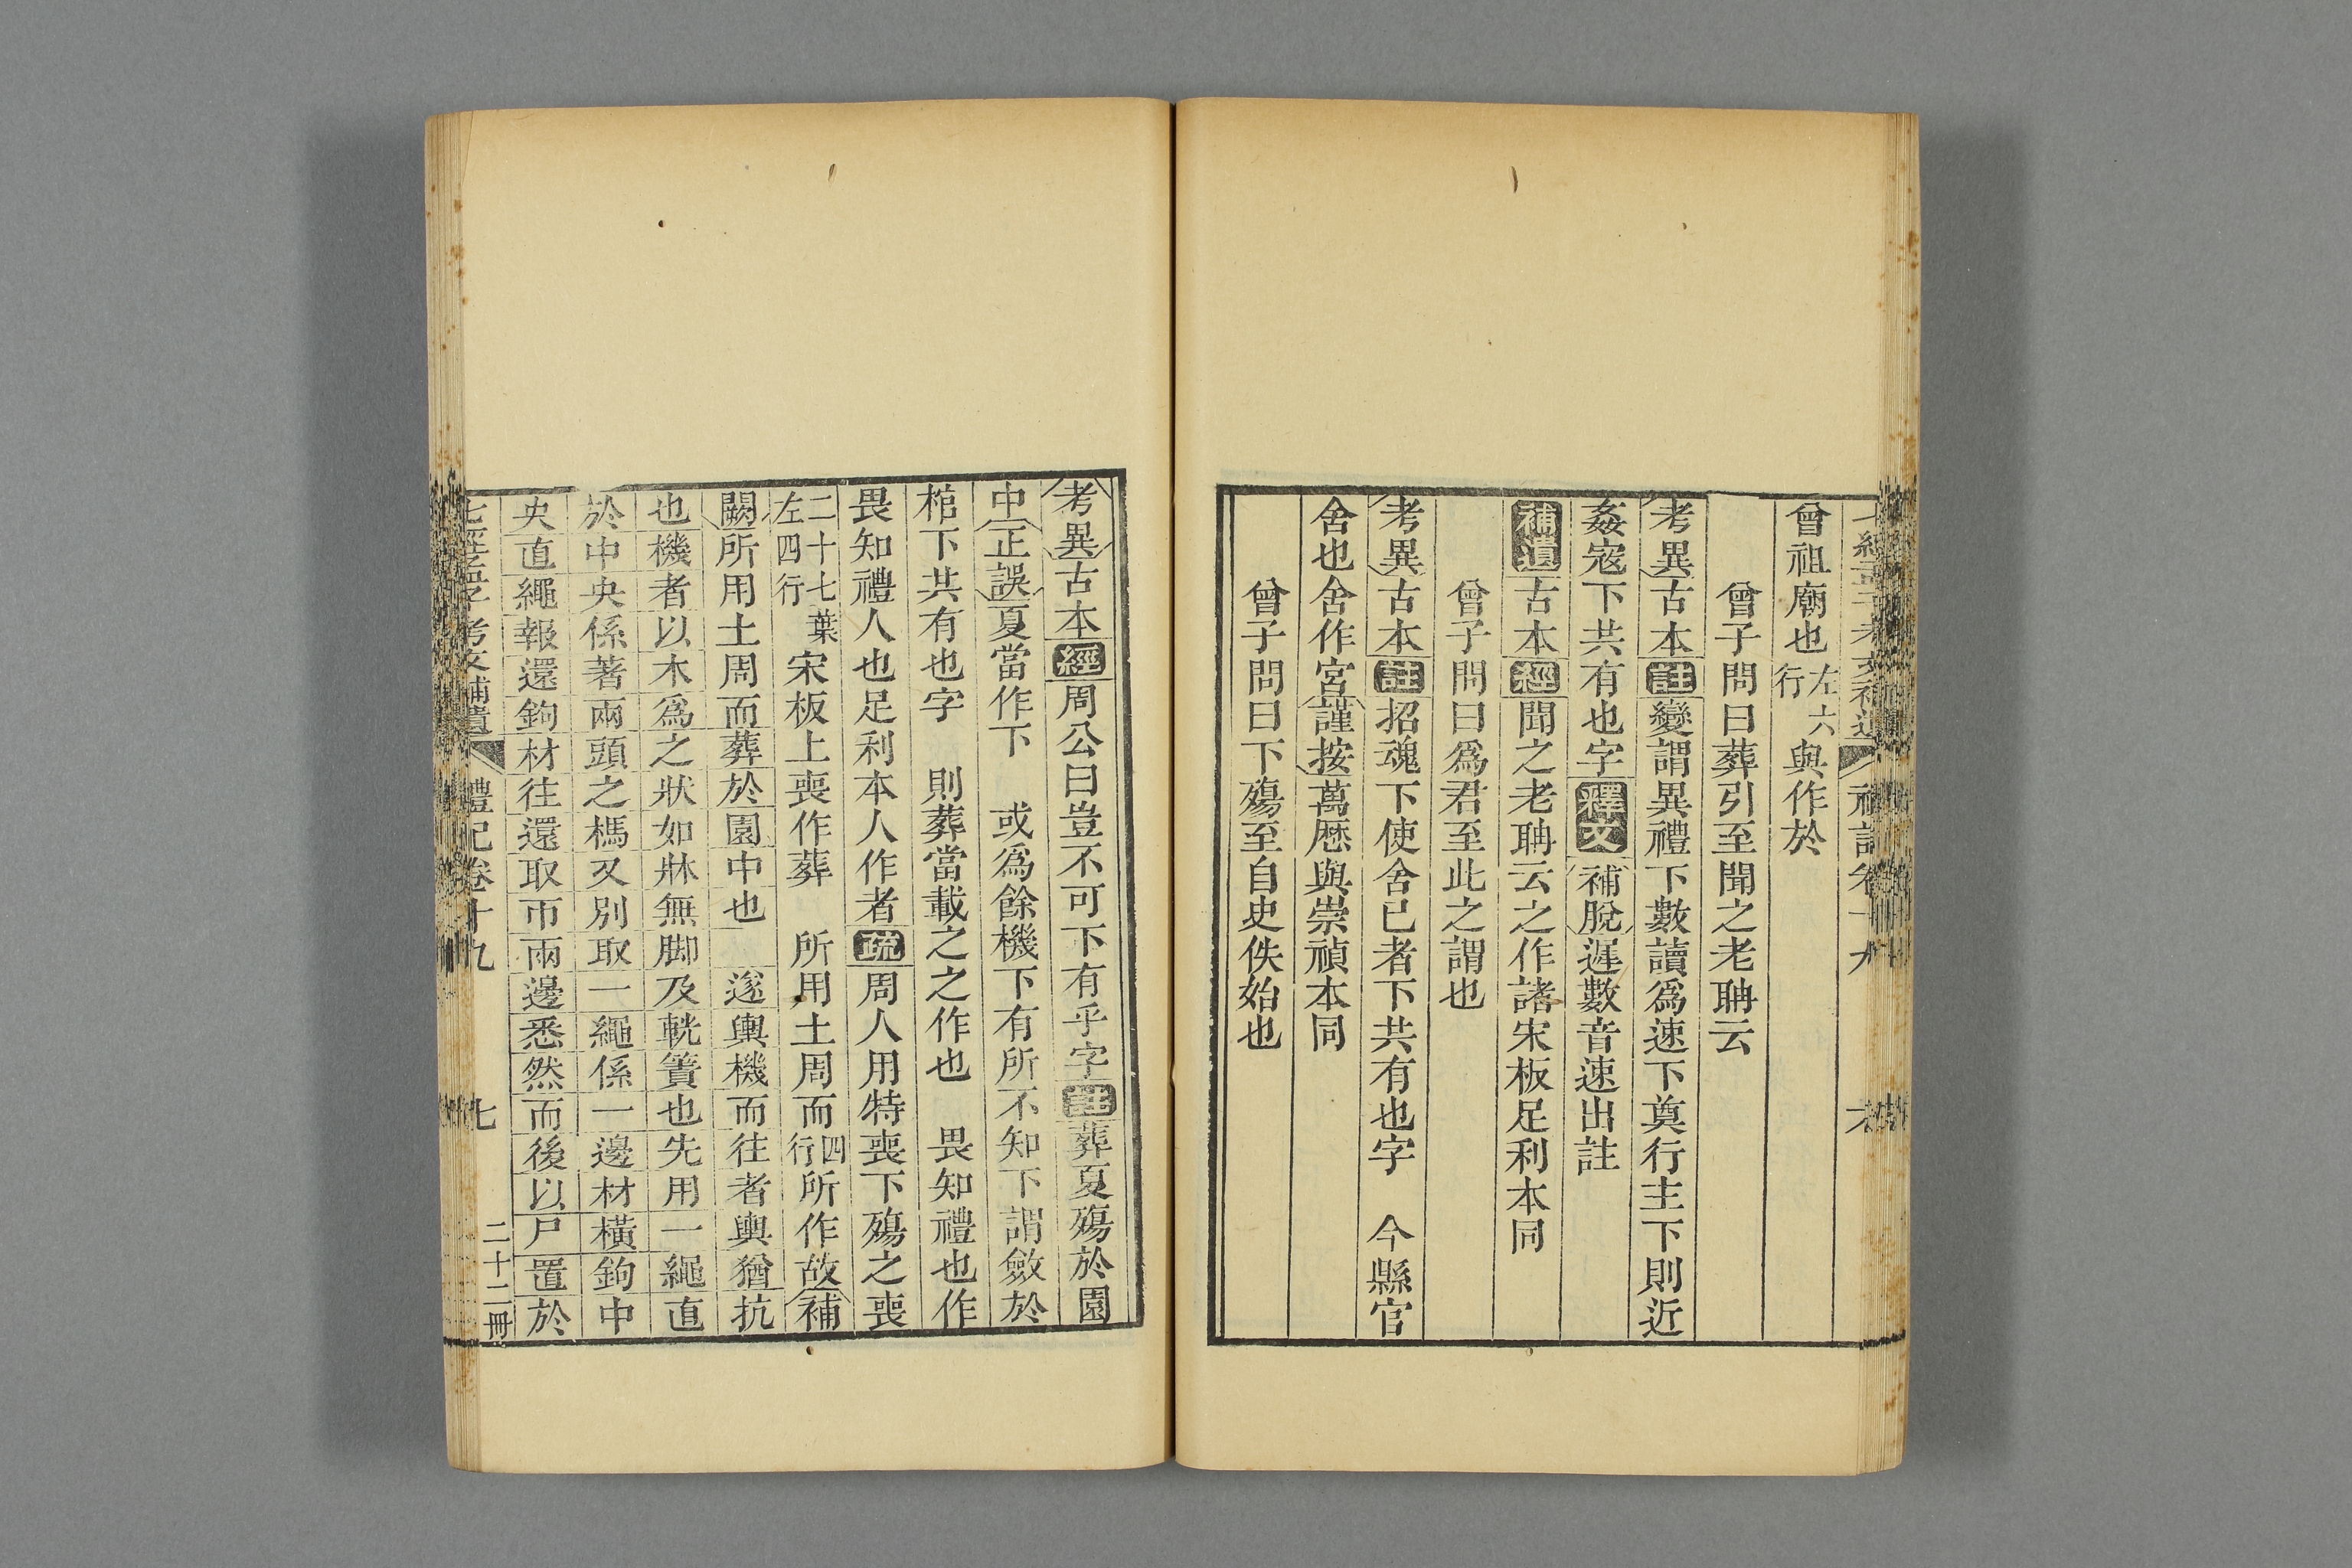 曾祖廟也左六行與作於
曾子問曰葬引至聞之老聃云
考異古本註變謂異禮下數讀爲速下奠行主下則近
姦寇下共有也字釋文補脫遲數音速出註
補遺古本經聞之老聃云之作諸宋板足利本同
曾子問曰爲君至此之謂也
考異古本註招魂下使舍已者下共有也字　今縣官
舍也舍作宮謹按萬曆與崇禎本同
曾子問曰下殤至自史佚始也
考異古本經周公曰豈不可下有乎字註葬夏殤於園
中正誤夏當作下　或爲餘機下有所不知下謂斂於
棺下共有也字　則葬當載之之作也　畏知禮也作
畏知禮人也足利本人作者疏周人用特喪下殤之喪
二十七葉左四行宋板上喪作葬　所用土周而四行所作故補
闕所用土周而葬於園中也　遂輿機而往者輿猶抗
也機者以木爲之狀如牀無脚及輄簀也先用一繩直
於中央係著兩頭之榪又別取一繩係一邊材橫鉤中
央直繩報還鉤材往還取帀兩邊悉然而後以尸置於
七經孟子考文補遺　禮記卷十九　七　二十二冊